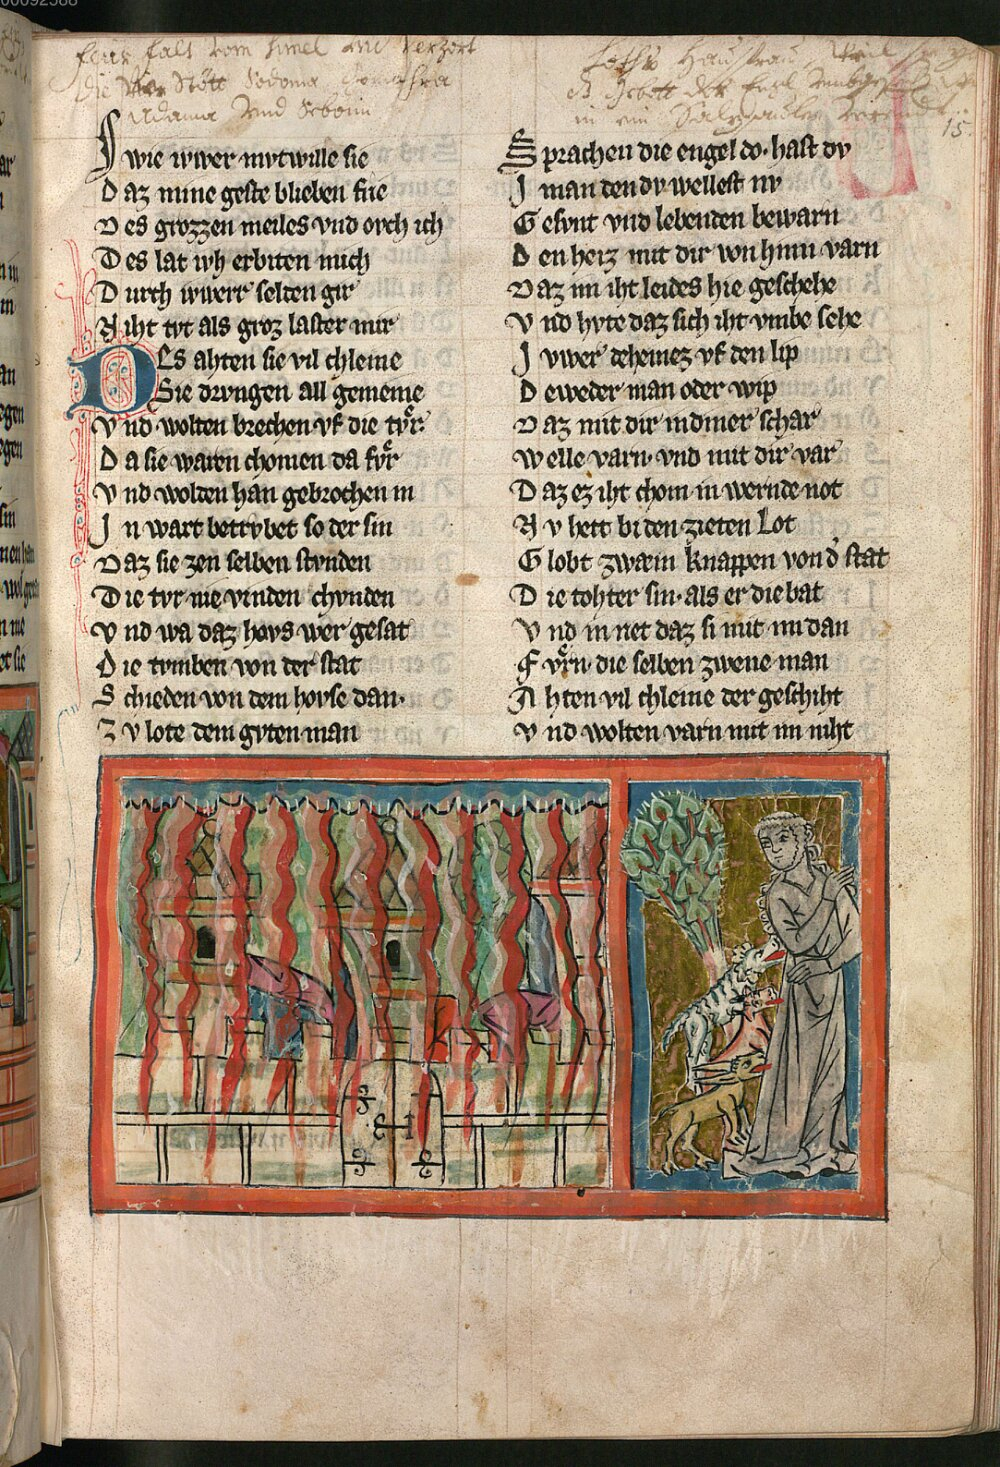 00092588
feür falt vom himel vnd verzert
die Stött Sodoma Gomohra
Adama vnd Seboim
Loths Haustrau, weil
Gebott der Engel
in ein Saltzsaule
15
J wie iwer mvtwille sie
D az mine geste blieben frie
D es grozzen meiles vnd ovch ich
D es lat iwh erbiten mich
D urch iwerr selten gir
N iht tvt als groz laster mir
DEs ahten sie vil chleine
Sie drvngen all gemeine
V nd wolten brechen vf die tvͤr
D a sie waren chomen da fvͤr
V nd wolden han gebrochen in
J n wart betrvbet so der sin
D az sie zen selben stvnden
D ie tvr nie vinden chvnden
V nd wa daz hovs wer gesat
D ie tvmben von der stat
S chieden von dem hovse dan·
Z v lote dem gvten man
S prachen die engel do· hast dv
J man den dv wellest nv
G esvnt vnd lebenden bewarn
D en heiz mit dir von hinn varn
D az im iht leides hie geschehe
V nd hvte daz sich iht vmbe sehe
J vwer deheinez vf den lip
D eweder man oder wip
D az mit dir in diner schar
W elle varn· vnd mit dir var
D az ez iht chom in wernde not
N v hett bi den zieten Lot
G lobt zwain knappen von d̕ stat
D ie tohter sin· als er die bat
V nd in riet daz si mit im dan
F vͤrn· die selben zwene man
A hten vil chleine der geschiht
V nd wolten varn mit im niht